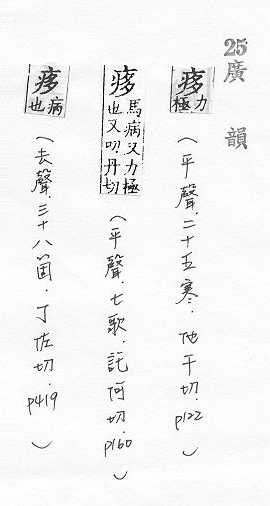 25廣韻
痑 力極(平聲.二十五寒.他干切.p122)
痑 馬病又力極也又叨丹切(平聲.七歌.託何切.p160)
痑 病也(去聲.三十八箇.丁佐切.p419)